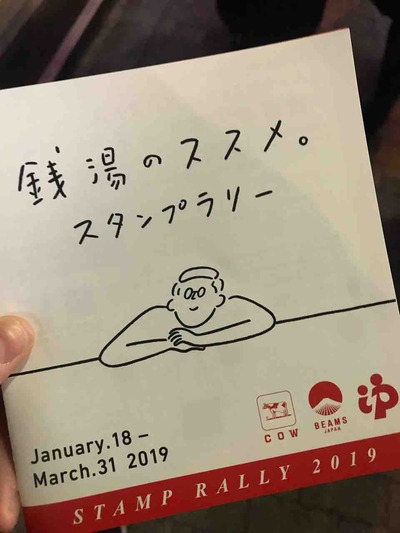 銭湯のススメ。
スタンプラリー
January.18 –
March.31 2019
COW
BEAMS
JAPAN
STAMP RALLY 2019